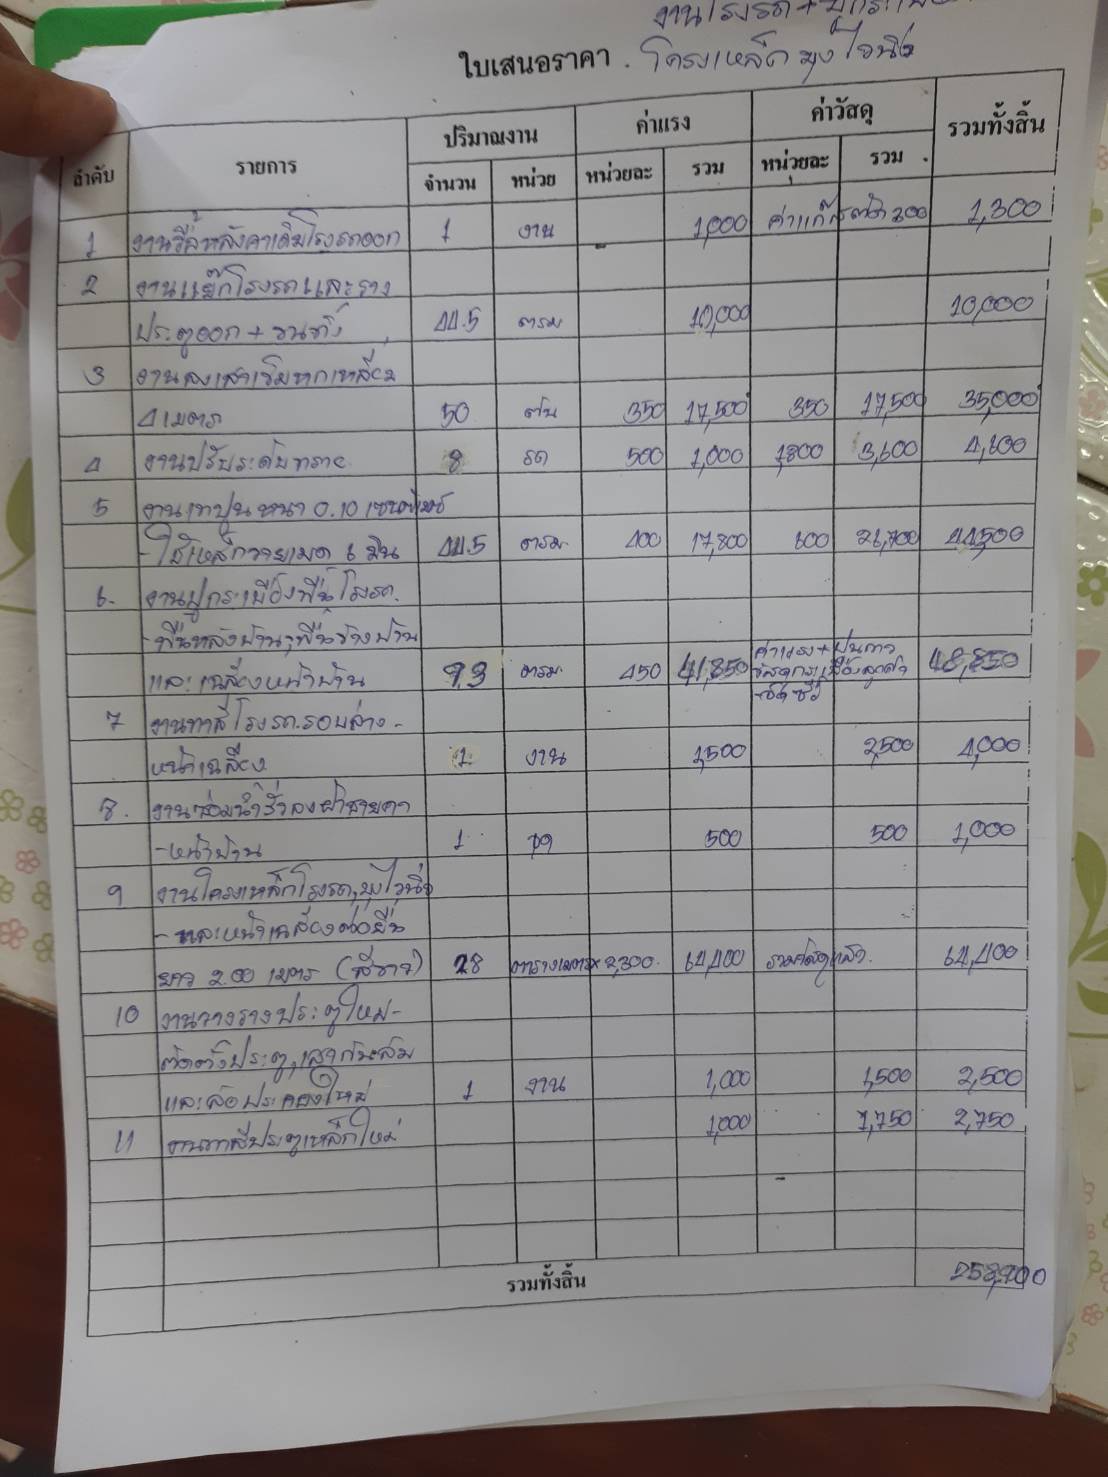 งานโรงรถ + ปูกระเบื้อง
ใบเสนอราคา . โครงเหล็ก มุงไวนิล
ลำดับ รายการ ปริมาณงาน ค่าแรง ค่าวัสดุ รวมทั้งสิ้น
จำนวน หน่วย หน่วยละ รวม หน่วยละ รวม
1 งานรื้อหลังคาเดิมโรงรถออก 1 งาน 1,000 ค่าแก๊สตัด 300 1,300
2 งานแย๊กโรงรถและราง
ประตูออก + ขนทิ้ง 44.5 ตรม 10,000 10,000
3 งานลงเสาเข็มหกเหลี่ยม
4 เมตร 50 ต้น 350 17,500 350 17,500 35,000
4 งานปรับระดับทราย 2 รถ 500 1,000 1,800 3,600 4,600
5 งานเทปูนหนา 0.10 เซนติเมตร
- ใช้เหล็กวายเมด 6 มิน 44.5 ตรม. 400 17,800 600 26,700 44,500
6. งานปูกระเบื้องพื้นโรงรถ.
- พื้นหลังบ้าน, พื้นข้างบ้าน
และเฉลียงหน้าบ้าน 93 ตรม. 450 41,850 ค่าแรง + ปูนกาว 48,850
7 งานทาสีโรงรถ.รอบล่าง -
หน้าเฉลียง 1 งาน 1,500 2,500 4,000
8. งานซ่อมน้ำรั่วลงฝ้าชายคา
- หน้าบ้าน 1 จุด 500 500 1,000
9 งานโครงเหล็กโรงรถ,มุงไวนิล
- และหน้าเฉลียงต่อยื่น
ยาว 2.00 เมตร (สีขาว) 28 ตารางเมตร 2,300. 64,400 รวมวัสดุแล้ว. 64,400
10 งานวางรางประตูใหม่ -
ติดตั้งประตู,เสากันล้ม
และล้อประคองใหม่ 1 งาน 1,000 1,500 2,500
11 งานทาสีประตูเหล็กใหม่ 1,000 1,750 2,750
รวมทั้งสิ้น